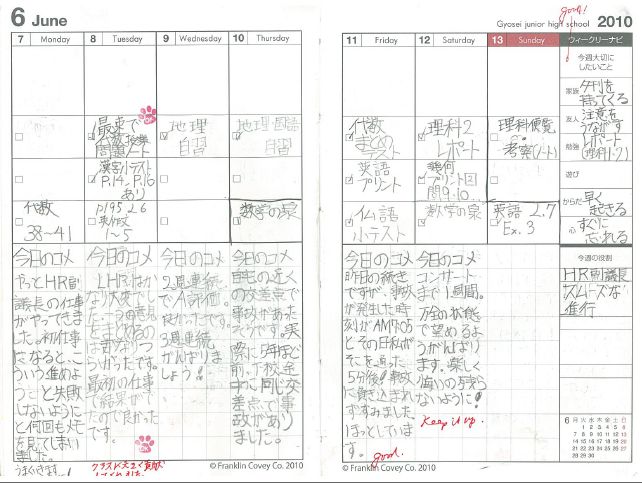 6 June
7 Monday
8 Tuesday
9 Wednesday
10 Thursday
代数
38~41
最末で
問題ノート
漢字小テスト
P.14、P.16
あり
P195 2.6
1~5
地理
自習
地理・国語
自習
数学の泉
今日のコメ
やっとHR副
議長の仕事
がやってきま
した。初仕事
になると、こ
ういう進めよ
うこと失敗
しないように
と何回もメモ
を見てしまい
ました。
今日のコメ
LHRはか
なり大変でし
た。二つの意見
をまとめるの
はすかりつ
らかったです。
最初の仕事
で結果がで
たので良かった
です。
今日のコメ
2週連続
でA評価。
良かったです。
3週連続
がんばりま
しょう!
今日のコメ
自宅の近く
の交差点で
事故があった
そうです。実
際に5年ほど
前、下校途
中に同じ交
差点で事
故がありま
した。
© Franklin Covey Co. 2010
good!
Gyosei junior high school 2010
11 Friday
12 Saturday
13 Sunday
ウィークリーナビ
今週大切に
したいこと
代数
まとめ
英語
プリント
仏語
小テスト
理科2
レポート
幾何
プリント図
問9、10…
数学の泉
理科便覧
考察(ノート)
英語 L.7
Ex.3
家族
夕刊を
持ってくる
友人
注意を
うながす
勉強
レポート
(理科1・2)
遊び
からだ
早く
起きる
心
すぐに
忘れる
今週の役割
HR副議長
スムーズな
進行
今日のコメ
昨日の続き
ですが、事故
が発生した時
刻がAM7:05
とその日私が
そこを通った
5分後!事故
に巻き込まれ
ずすみました。
ほっとしていま
す。
good.
今日のコメ
コンサート
まで1週間。
万全の状態
で望めるよ
うがんばり
ます。楽しく
悔いの残ら
ないように!
Keep it up.
6 月 火 水 木 金 土 日
1 2 3 4 5 6
7 8 9 10 11 12 13
14 15 16 17 18 19 20
21 22 23 24 25 26 27
28 29 30
© Franklin Covey Co. 2010